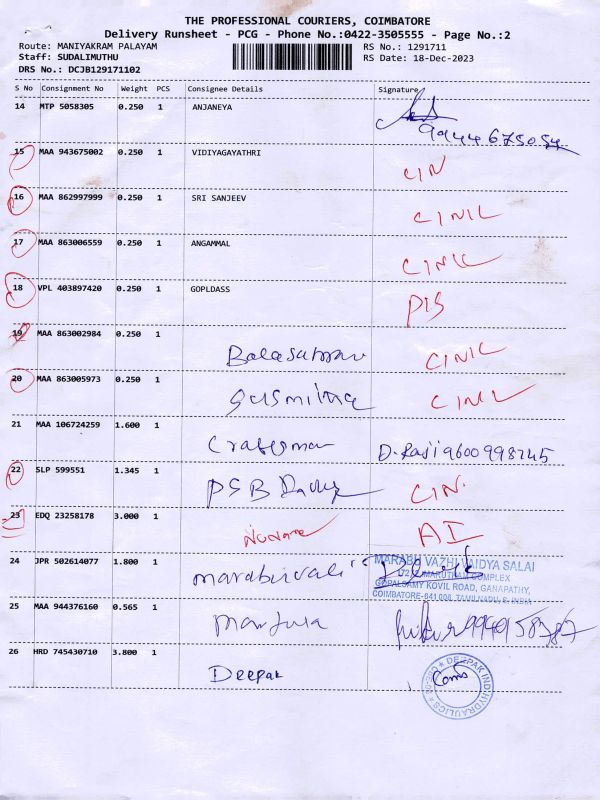 THE PROFESSIONAL COURIERS, COIMBATORE
Delivery Runsheet - PCG - Phone No.:0422-3505555 - Page No.:2
Route: MANIYAKRAM PALAYAM RS No.: 1291711
Staff: SUDALIMUTHU RS Date: 18-Dec-2023
DRS No.: DCJB129171102
S No Consignment No Weight PCS Consignee Details Signature
14 MTP 5058305 0.250 1 ANJANEYA
15 MAA 943675002 0.250 1 VIDIYAGAYATHRI CIN
16 MAA 862997999 0.250 1 SRI SANJEEV CINIL
17 MAA 863006559 0.250 1 ANGAMMAL CINIL
18 VPL 403897420 0.250 1 GOPLDASS PIS
19 MAA 863002984 0.250 1 CINIL
20 MAA 863005973 0.250 1 CINIL
21 MAA 106724259 1.600 1 D.Raji 9600998745
22 SLP 599551 1.345 1 PSB CIN.
23 EDQ 23258178 3.000 1 NoName AI
24 JPR 502614077 1.800 1
MARABU VAZHI VAIDYA SALAI
MARUTHAM COMPLEX
GOPALSAMY KOVIL ROAD, GANAPATHY,
COIMBATORE-641 006, TAMILNADU, S. INDIA
25 MAA 944376160 0.565 1 Manjula
26 HRD 745430710 3.800 1 Deepak
DEEPAK IND HYDRAULICS